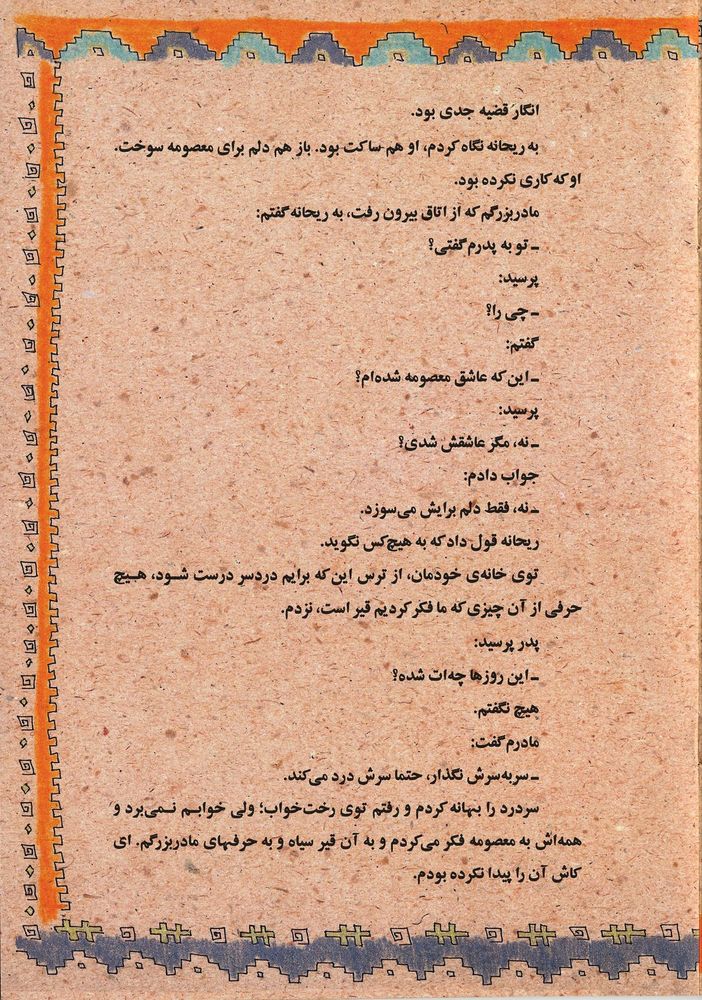 انگار قضیه جدی بود.
به ریحانه نگاه کردم، او هم ساکت بود. باز هم دلم برای معصومه سوخت.
او که کاری نکرده بود.
مادربزرگم که از اتاق بیرون رفت، به ریحانه گفتم:
ـ تو به پدرم گفتی؟
پرسید:
ـ چی را؟
گفتم:
ـ این که عاشق معصومه شده‌ام؟
پرسید:
ـ نه، مگر عاشقش شدی؟
جواب دادم:
ـ نه، فقط دلم برایش می‌سوزد.
ریحانه قول داد که به هیچ‌کس نگوید.
توی خانه‌ی خودمان، از ترس این که برایم دردسر درست شـود، هـیچ
حرفی از آن چیزی که ما فکر کردیم قیر است، نزدم.
پدر پرسید:
ـ این روزها چه‌ات شده؟
هیچ نگفتم.
مادرم گفت:
ـ سربه‌سرش نگذار، حتما سرش درد می‌کند.
سردرد را بهانه کردم و رفتم توی رخت‌خواب؛ ولی خوابـم نـمی‌برد و
همه‌اش به معصومه فکر می‌کردم و به آن قیر سیاه و به حرفهای مادربزرگم. ای
کاش آن را پیدا نکرده بودم.